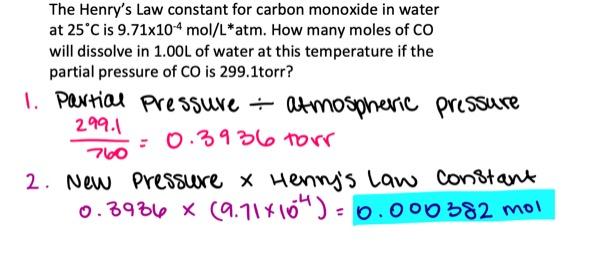 The Henry's Law constant for carbon monoxide in water
at 25°C is 9.71x10-4 mol/L*atm. How many moles of CO
will dissolve in 1.00L of water at this temperature if the
partial pressure of CO is 299.1torr?
1. Partial Pressure ÷ atmospheric pressure
299.1
760 = 0.3936 torr
2. New Pressure x Henry's Law Constant
0.3936 x (9.71x10-4) = 0.000382 mol